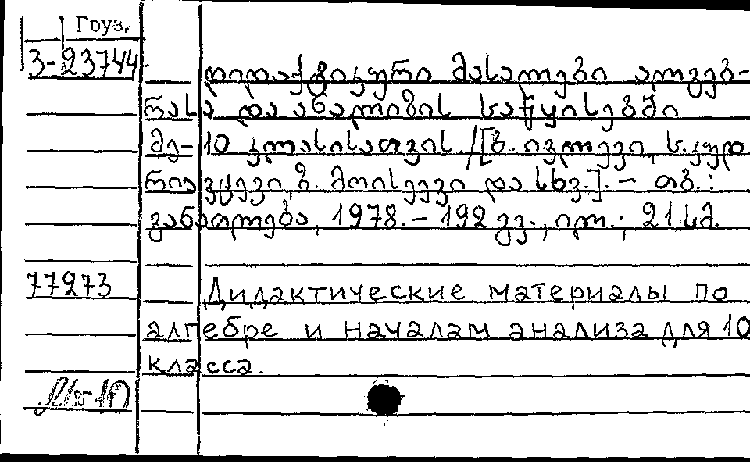 Груз.
3-23744
დიდაქტიკური მასალები ალგებ-
რასა და ანალიზის საწყისებში
მე-10 კლასისათვის /[ბ. ივლევი, ს. კუდ
რიავცევი, ზ. მოისეევი და სხვ.]. – თბ.:
განათლება, 1978. – 192 გვ., ილ.; 21 სმ.
77273
Дидактические материалы по
алгебре и началам анализа для 10
класса.